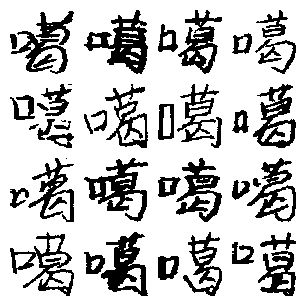 噶噶噶噶
噶噶噶噶
噶噶噶噶
噶噶噶噶